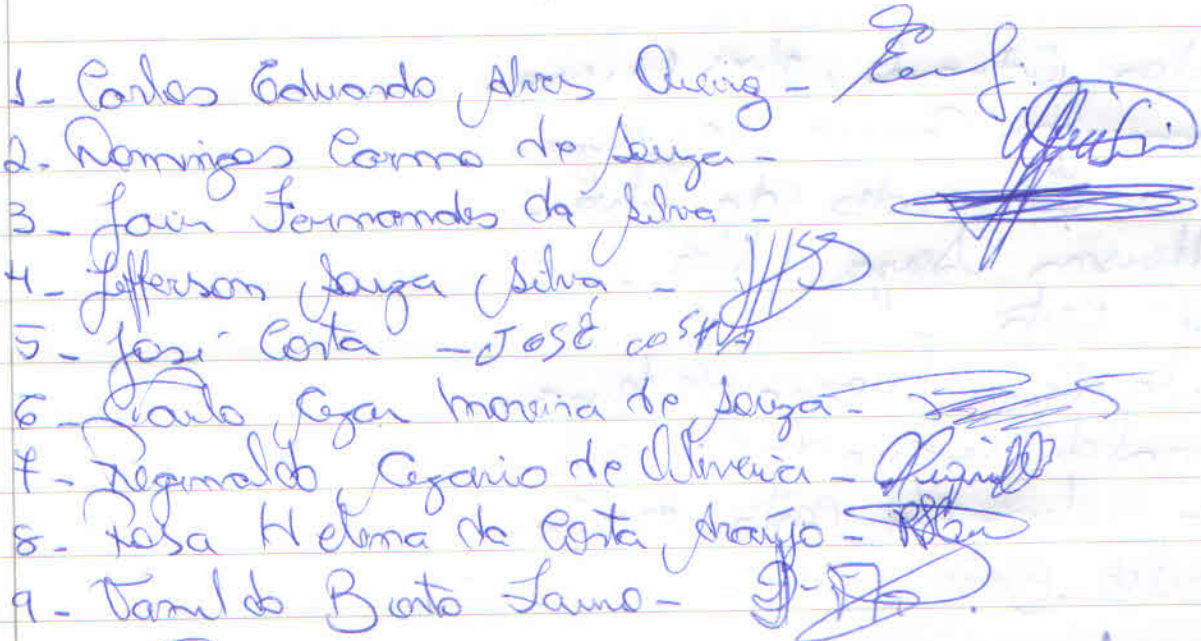 1- Carlos Eduardo Alves Queiroz -
2- Domingos Carmo de Souza -
3- Jair Fernandes da Silva -
4- Jefferson Souza Silva -
5- José Costa - José costa
6- Paulo Cezar moreira de Souza -
7- Reginaldo Cezario de Oliveira -
8- Rosa Helena da Costa Araújo -
9- Vanildo Bento